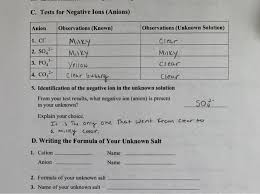 C. Tests for Negative Ions (Anions)
Anion Observations (Known) Observations (Unknown Solution)
1. Cl⁻ Milky Clear
2. SO₄²⁻ Milky Milky
3. PO₄³⁻ Yellow Clear
4. CO₃²⁻ Clear bubbly Clear
5. Identification of the negative ion in the unknown solution
From your test results, what negative ion (anion) is present
in your unknown? SO₄²⁻
Explain your choice.
It is the only one that went from clear to
a milky color.
D. Writing the Formula of Your Unknown Salt
1. Cation Name
Anion Name
2. Formula of the unknown salt
3. Name of your unknown salt